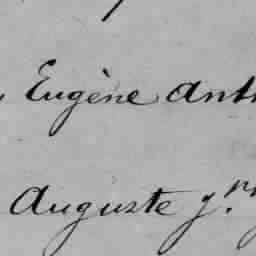 Eugène Anth
Auguste